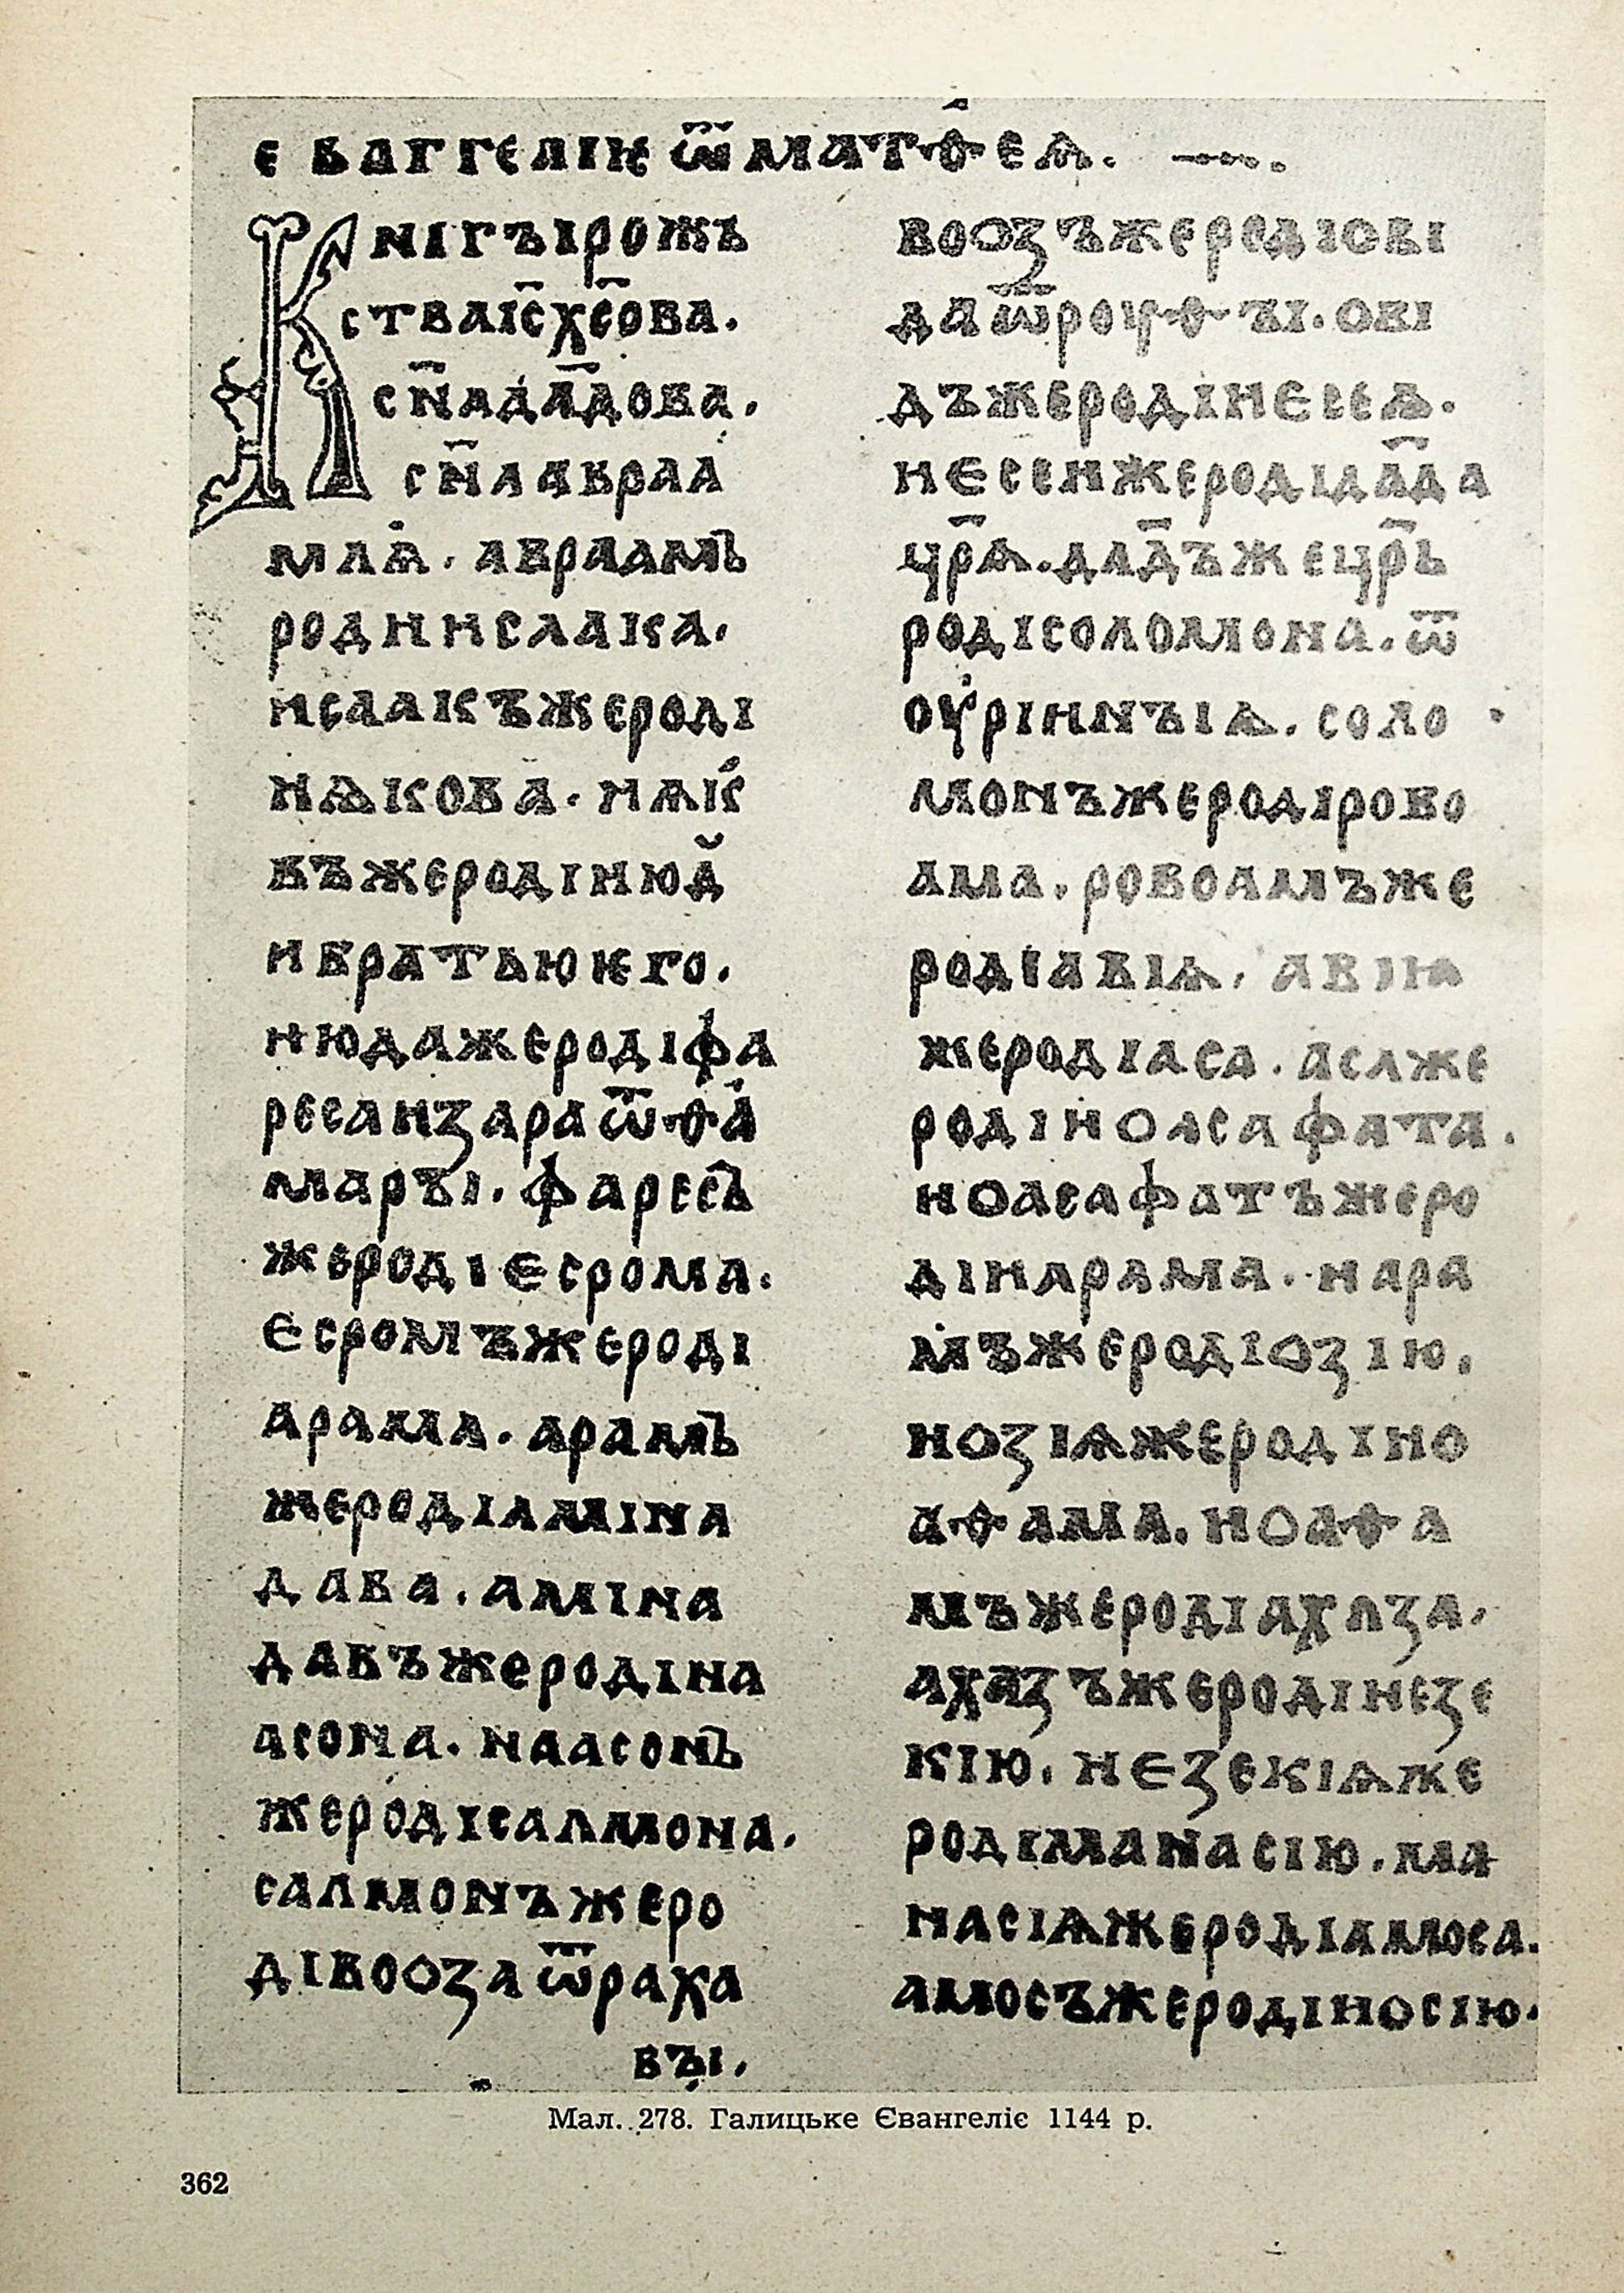 ЄВАГГЕЛІѤ Ѿ МАТѲЕѦ.
КНІГЪІРОЖЬ
СТВАІС҃ХС҃ОВА.
СН҃АДАД҃ОВА.
СН҃ААВРАА
МЛѦ. АВРААМЪ
РОДИИСААКА.
ИСААКЪЖЕРОДІ
ИѦКОВА. ИѦК
ВЪЖЕРОДІИЮД
ИБРАТЬЮѤГО.
ИЮДАЖЕРОДІФА
РЕСАИЗАРАѾѲА
МАРЪІ. ФАРЕСЪ
ЖЕРОДІЄСРОМА.
ЄСРОМЪЖЕРОДІ
АРАМА. АРАМЪ
ЖЕРОДІАМІНА
ДАВА. АМІНА
ДАВЪЖЕРОДІНА
АСОНА. НААСОНЪ
ЖЕРОДІСАЛМОНА.
САЛМОНЪЖЕРО
ДІВООЗАѾРАХА
ВЪІ.
ВООЗЪЖЕРОДІОВІ
ДАѾРОУѲЪІ. ОВІ
ДЪЖЕРОДІИЄСЕѦ.
ИЄСЕИЖЕРОДІДАД҃А
ЦР҃Ѧ. ДАД҃ЪЖЕЦР҃Ь
РОДІСОЛОМОНА. Ѿ
ОУРІИНЪІѦ. СОЛО
МОНЪЖЕРОДІРОВО
АМА. РОВОАМЪЖЕ
РОДІАВІѦ. АВІꙖ
ЖЕРОДІАСА. АСАЖЕ
РОДІИОАСАФАТА.
ИОАСАФАТЪЖЕРО
ДІИАРАМА. ИАРА
МЪЖЕРОДІОЗІЮ.
ИОЗІѦЖЕРОДІИО
АѲАМА. ИОАѲА
МЪЖЕРОДІАХАЗА.
АХАЗЪЖЕРОДІИЕЗЕ
КІЮ. ИЄЗЕКІѦЖЕ
РОДІМАНАСІЮ. МА
НАСІѦЖЕРОДІАМОСА.
АМОСЪЖЕРОДІИОСІЮ.
Мал. 278. Галицьке Євангеліє 1144 р.
362